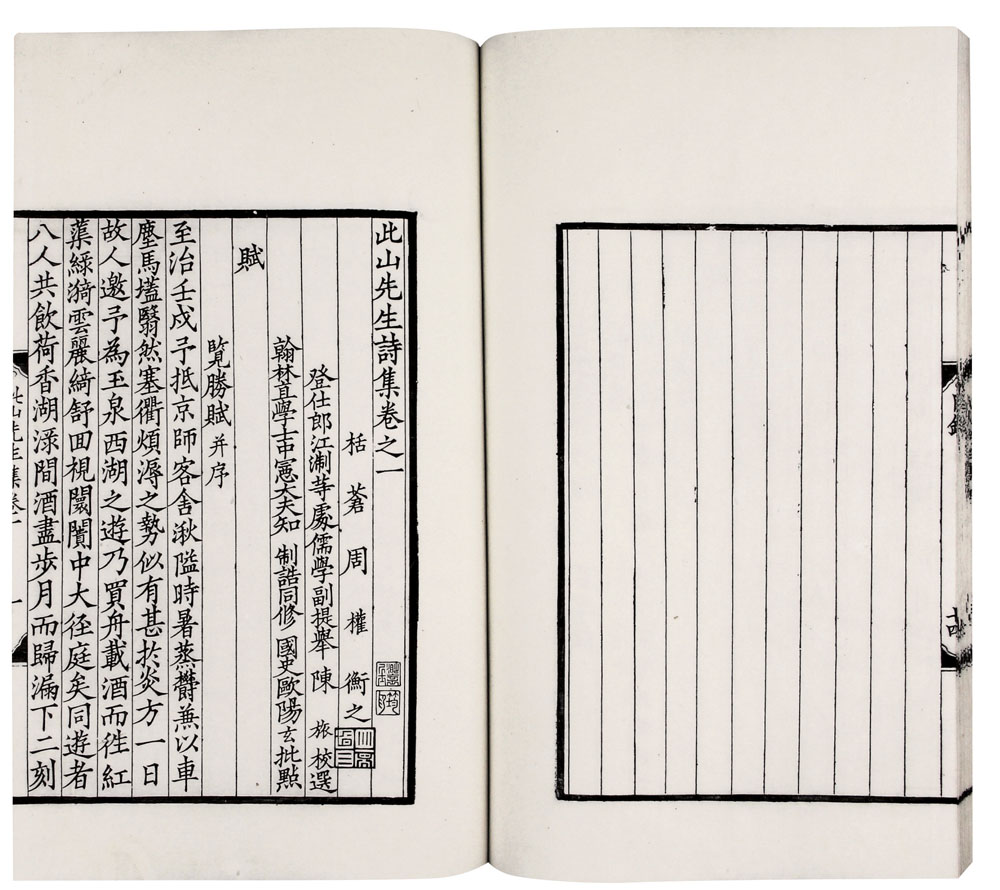 此山先生詩集卷之一
栝蒼周權衡之
登仕郎江淛等處儒學副提舉陳旅校選
翰林直學士中憲大夫知制誥同修國史歐陽玄批點
賦
覽勝賦并序
至治壬戌予抵京師客舍湫隘時暑蒸欝蒸以車
塵馬壒翳然塞衢煩溽之勢似有甚於炎方一日
故人邀予為玉泉西湖之遊乃買舟載酒而徃紅
蕖緑漪雲麗綺舒回視闤闠中大徑庭矣同遊者
八人共飲荷香湖淥間酒盡步月而歸漏下二刻
此山先生集卷一
一
目錄